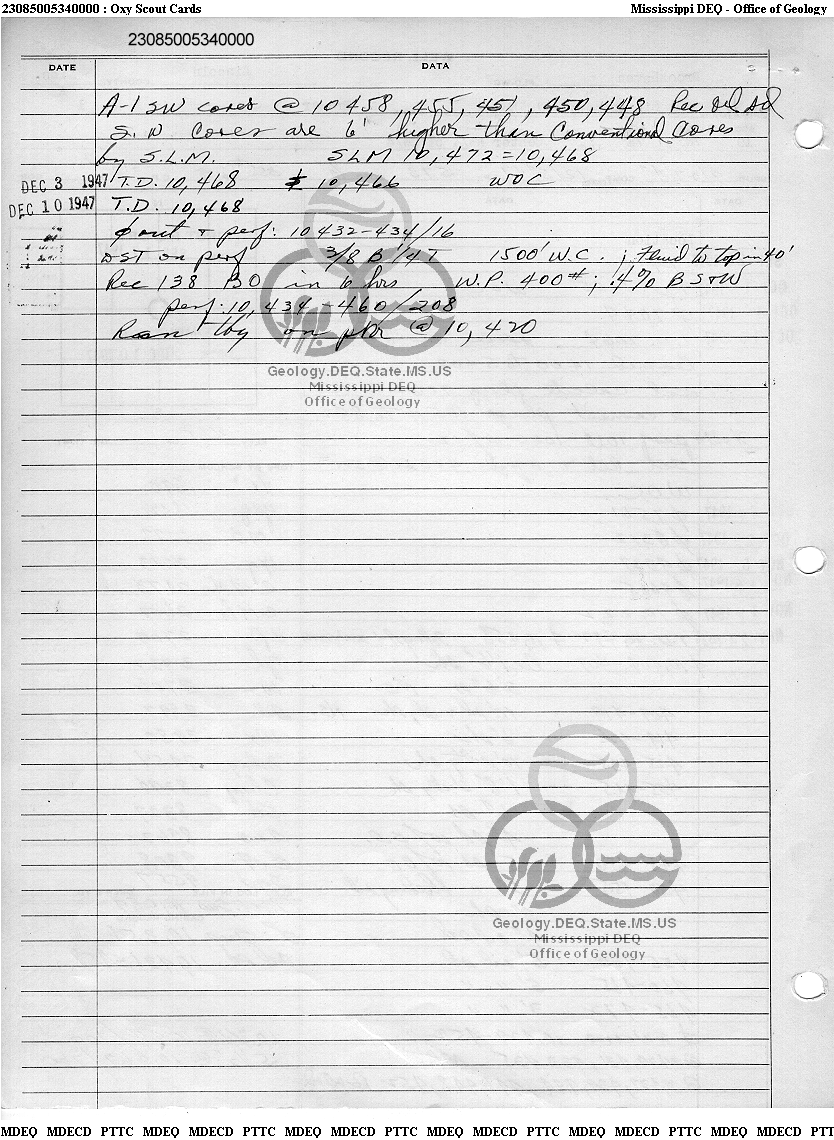 23085005340000 : Oxy Scout Cards Mississippi DEQ - Office of Geology
23085005340000
DATE DATA
A-1 SW cores @ 10458, 455, 451, 450, 448 Rec
S.W Cores are 6' higher than Conventional Cores
by S.L.M. SLM 10,472=10,468
DEC 3 1947 T.D. 10,468 10,466 WOC
DEC 10 1947 T.D. 10,468
+ perf: 10432-434/16
DST on perf 3/8 B 1/4 T 1500' W.C. ; Fluid to top in 40'
Rec 138 BO in 6 hrs W.P. 400#; .4% BS&W
perf: 10,434-460/208
Ran tbg on pkr @ 10,420
Geology.DEQ.State.MS.US
Mississippi DEQ
Office of Geology
Geology.DEQ.State.MS.US
Mississippi DEQ
Office of Geology
MDEQ MDECD PTTC MDEQ MDECD PTTC MDEQ MDECD PTTC MDEQ MDECD PTTC MDEQ MDECD PTTC MDEQ MDECD PTT